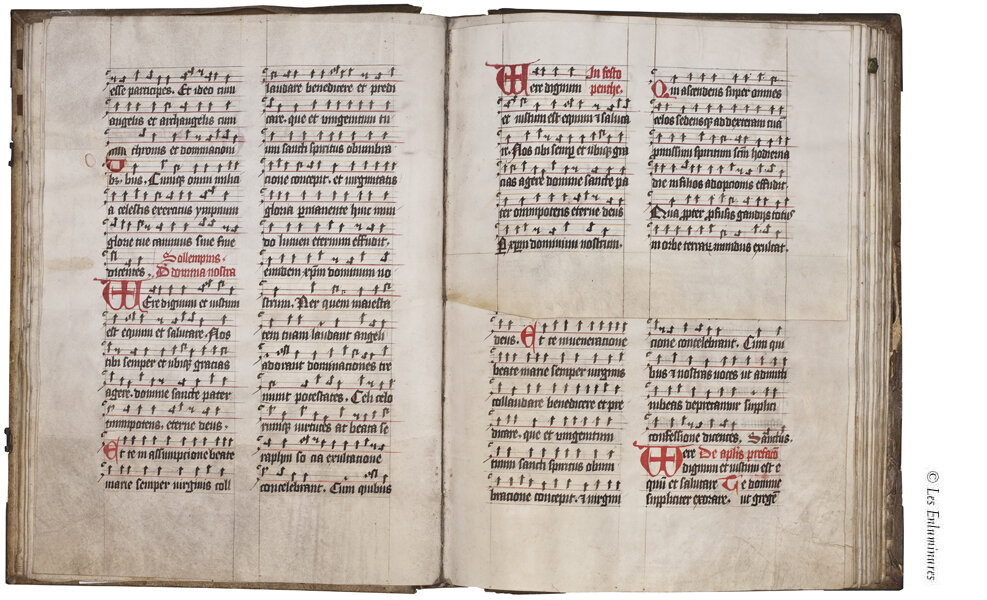 esse participes. Et ideo cum
angelis et archangelis cum
thronis et dominacioni
bus. Cumq; omni milic
a celestis exercitus ympnum
glorie tue canimus sine fine
dicentes. Sollempnis.
D domina nostra
VEre dignum et iustum
est equum et salutare. Nos
tibi semper et ubiq; gracias
agere. domine sancte pater
omnipotens, eterne deus.
Et te in assumpcione beate
marie semper virginis coll
laudare benedicere et predi
care. que et unigenitum tu
um sancti spiritus obumbra
cione concepit. et virginitatis
gloria permanente huic mun
do lumen eternum effudit.
eiusdem xpm dominum no
strum. Per quem maiesta
tem tuam laudant angeli
adorant dominaciones tre
munt potestates. Celi celo
rumq; virtutes ac beata se
raphin so cia exultacione
concelebrant. Cum quibus
Vere dignum In festo
penthe.
et iustum est equum et saluta
re. Nos tibi semp et ubiq; gra
cias agere domine sancte pa
ter omnipotens eterne deus
P xpm dominum nostrum.
Qui ascendens super omnes
celos sedensq; ad dexteram tua
promissum spiritum scm hodierna
die in filios adopcionis effudit.
Qua propter profusis gaudijs totus
in orbe terrar mundus exultat.
deus. Et te in veneracione
beate marie semper virginis
collaudare benedicere et pre
dicare. que et unigenitum
tuum sancti spiritus obum
bracione concepit. et virgini
cione concelebrant. Cum qui
bus et nostras voces ut admitti
iubeas deprecamur supplici
confessione dicentes, Sanctus.
Vere De aplis prefacio
dignum et iustum est e
quum et salutare Te domine
suppliciter exorare. ut gregem
© Les Enluminures